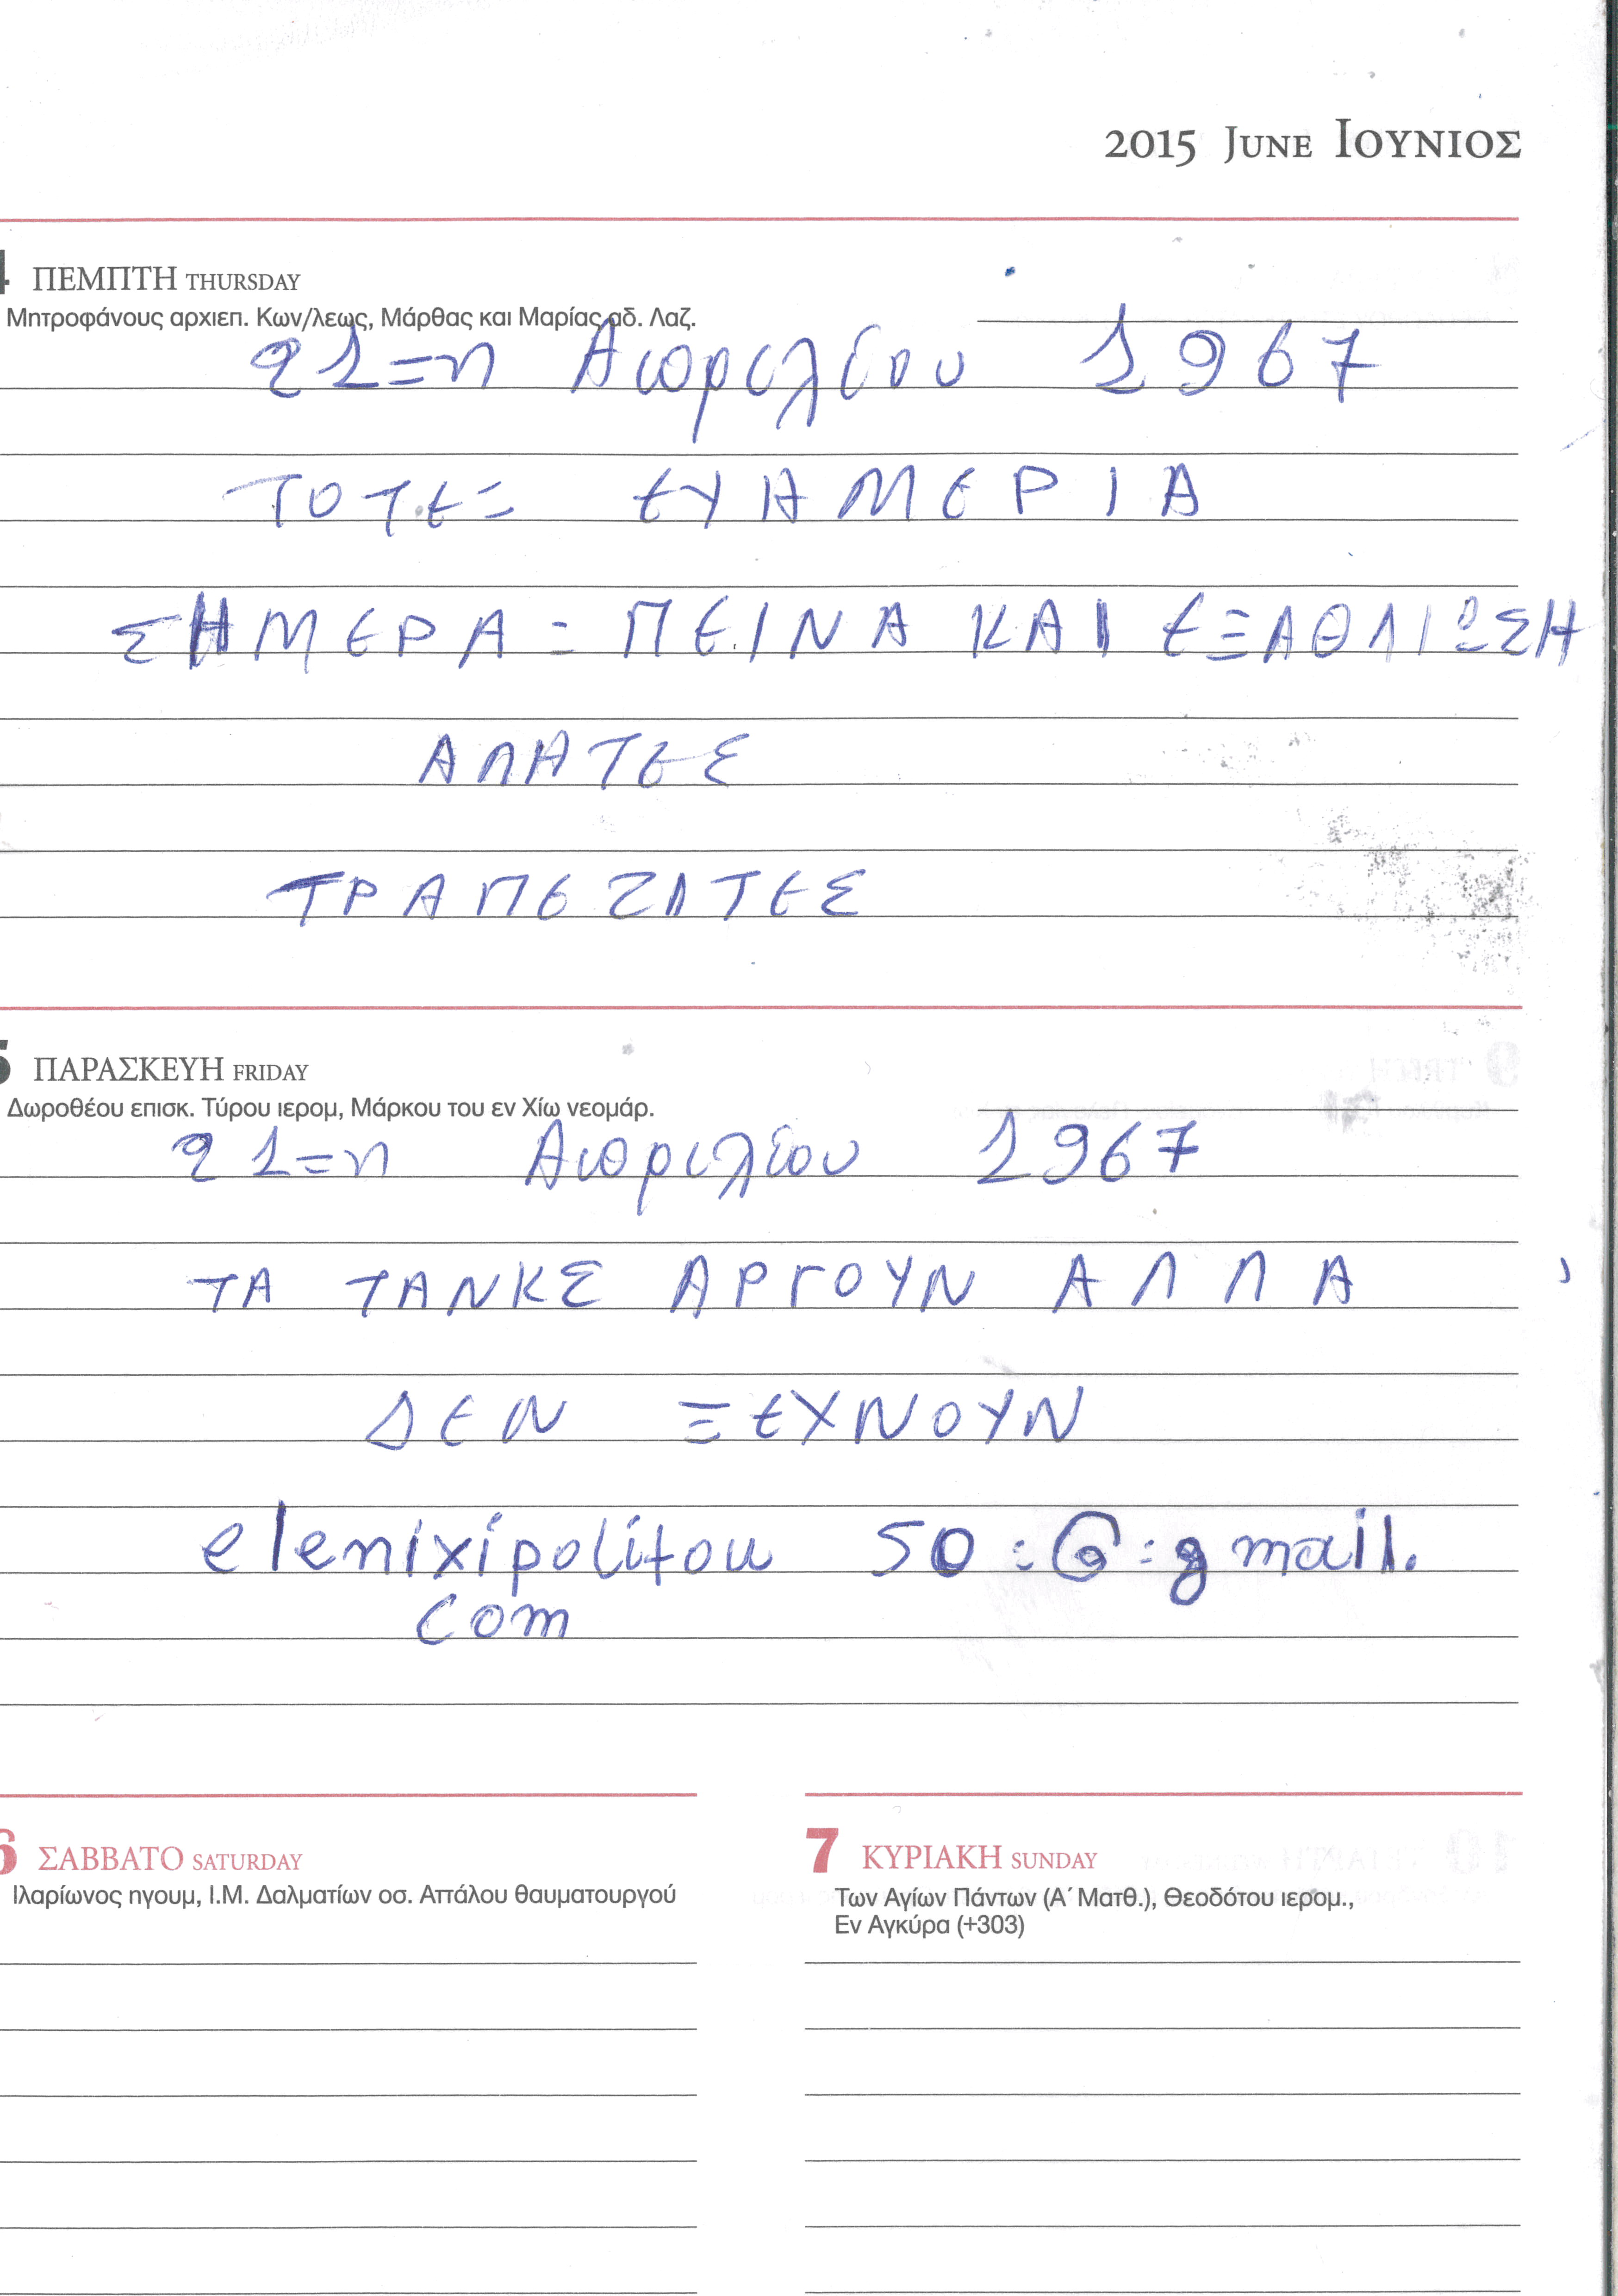 2015 JUNE ΙΟΥΝΙΟΣ
4 ΠΕΜΠΤΗ THURSDAY
Μητροφάνους αρχιεπ. Κων/λεως, Μάρθας και Μαρίας αδ. Λαζ.
21=η Απριλίου 1967
ΤΟΤΕ= ΕΥΗΜΕΡΙΑ
ΣΗΜΕΡΑ= ΠΕΙΝΑ ΚΑΙ ΕΞΑΘΛΙΩΣΗ
ΑΛΗΤΕΣ
ΤΡΑΠΕΖΙΤΕΣ
5 ΠΑΡΑΣΚΕΥΗ FRIDAY
Δωροθέου επισκ. Τύρου ιερομ, Μάρκου του εν Χίω νεομάρ.
21=η Απριλίου 1967
ΤΑ ΤΑΝΚΣ ΑΡΓΟΥΝ ΑΛΛΑ
ΔΕΝ ΞΕΧΝΟΥΝ
elenixipolitou 50:@:gmail.
com
6 ΣΑΒΒΑΤΟ SATURDAY
Ιλαρίωνος ηγουμ, Ι.Μ. Δαλματίων οσ. Αττάλου θαυματουργού
7 ΚΥΡΙΑΚΗ SUNDAY
Των Αγίων Πάντων (Α΄ Ματθ.), Θεοδότου ιερομ.,
Εν Αγκύρα (+303)